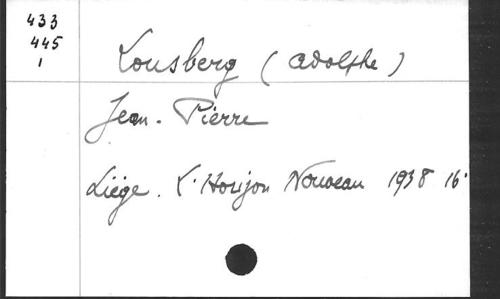 433
445
1
Lousberg (Adolphe)
Jean-Pierre
Liège. L'Horizon Nouveau 1938 16°